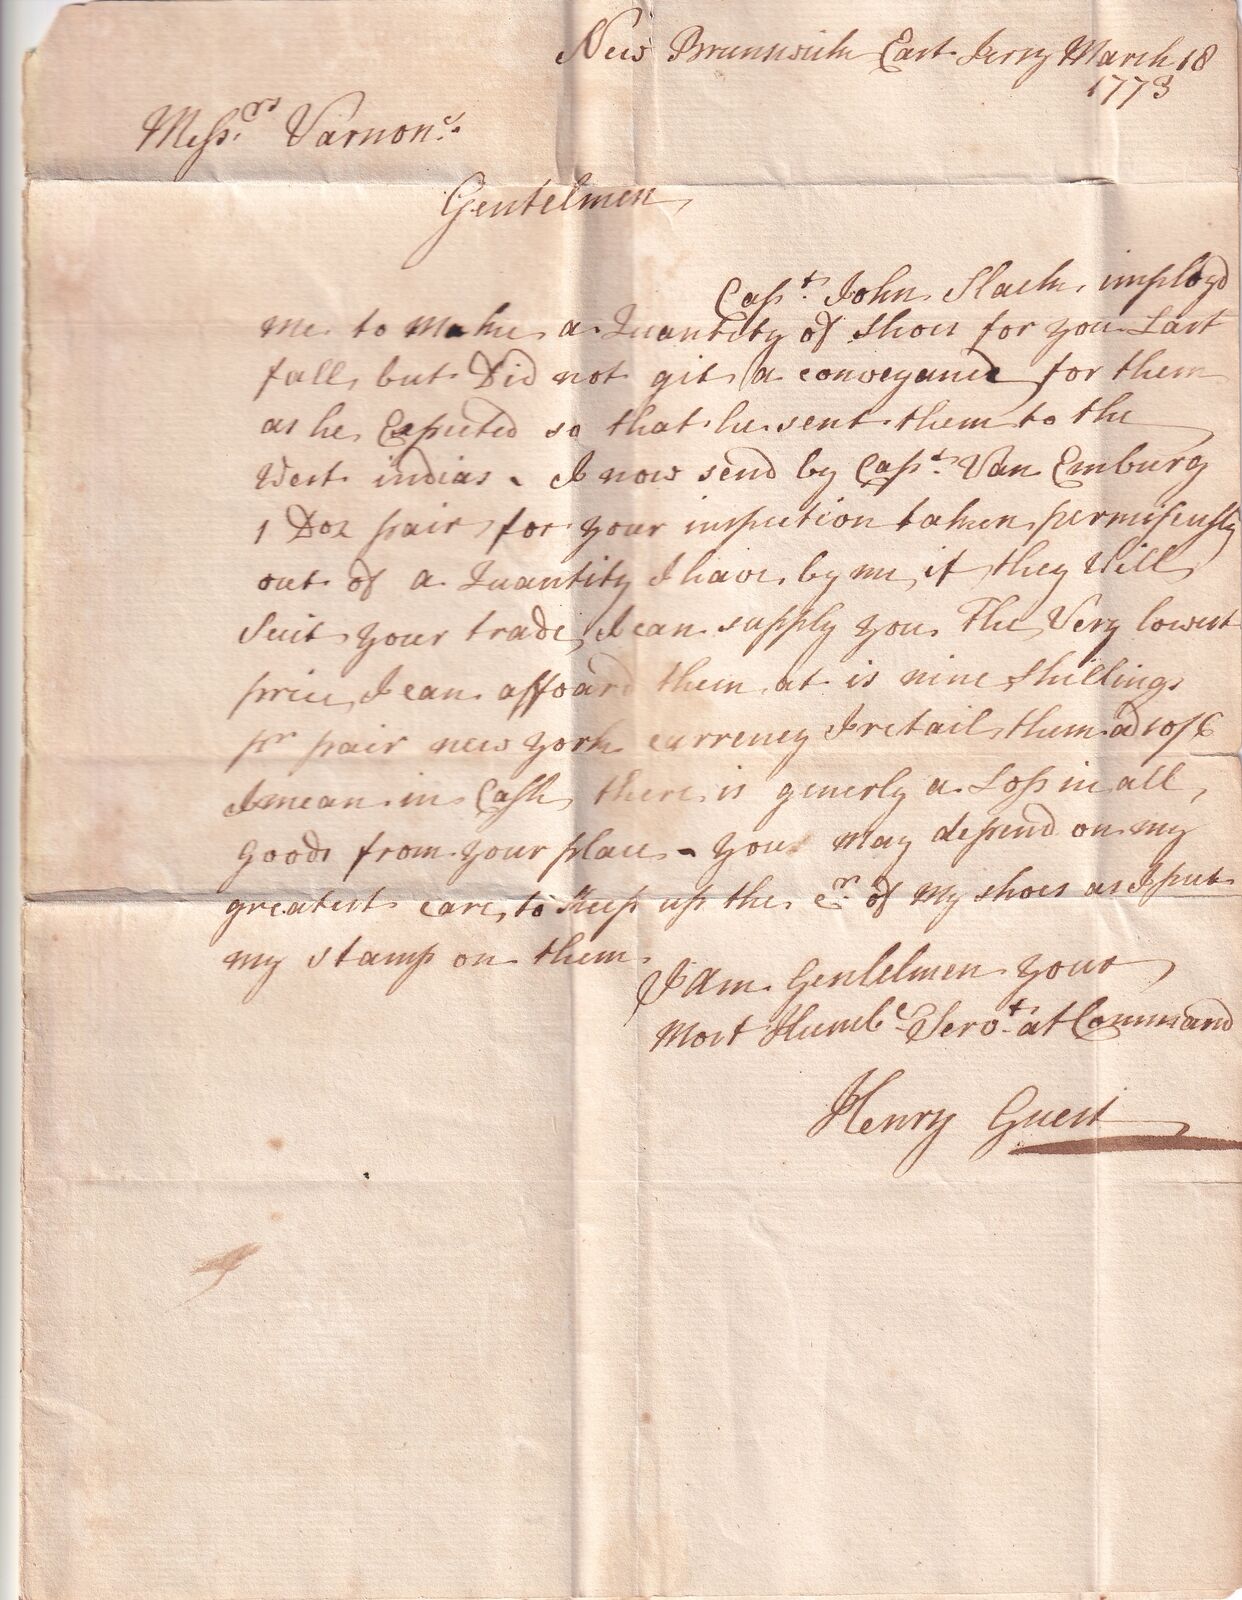 New Brunswick East Jersy March 18
1773
Messrs. Varnons.
Gentelmen
Capt. John Slack imployd
me to make a Quantity of shoes for you Last
fall, but Did not git a conveyance for them
as he Expected so that he sent them to the
West indias - I now send by Capt. Van Emburg
1 Doz pair for your inspection taken permiscusly
out of a Quantity I have by me, if they Will
Suit your trade, I can supply you The Very lowest
price I can affoard them at is nine Shillings
pr pair new york currency I retail them a 10/6
I mean in Cash there is generly a Loss in all
goods from your place - you may depend on my
greatest care to Keep up the Cr. of my shoes as I put
my stamp on them
I Am Gentelmen your
Most Humble Servt. at Command
Henry Guest